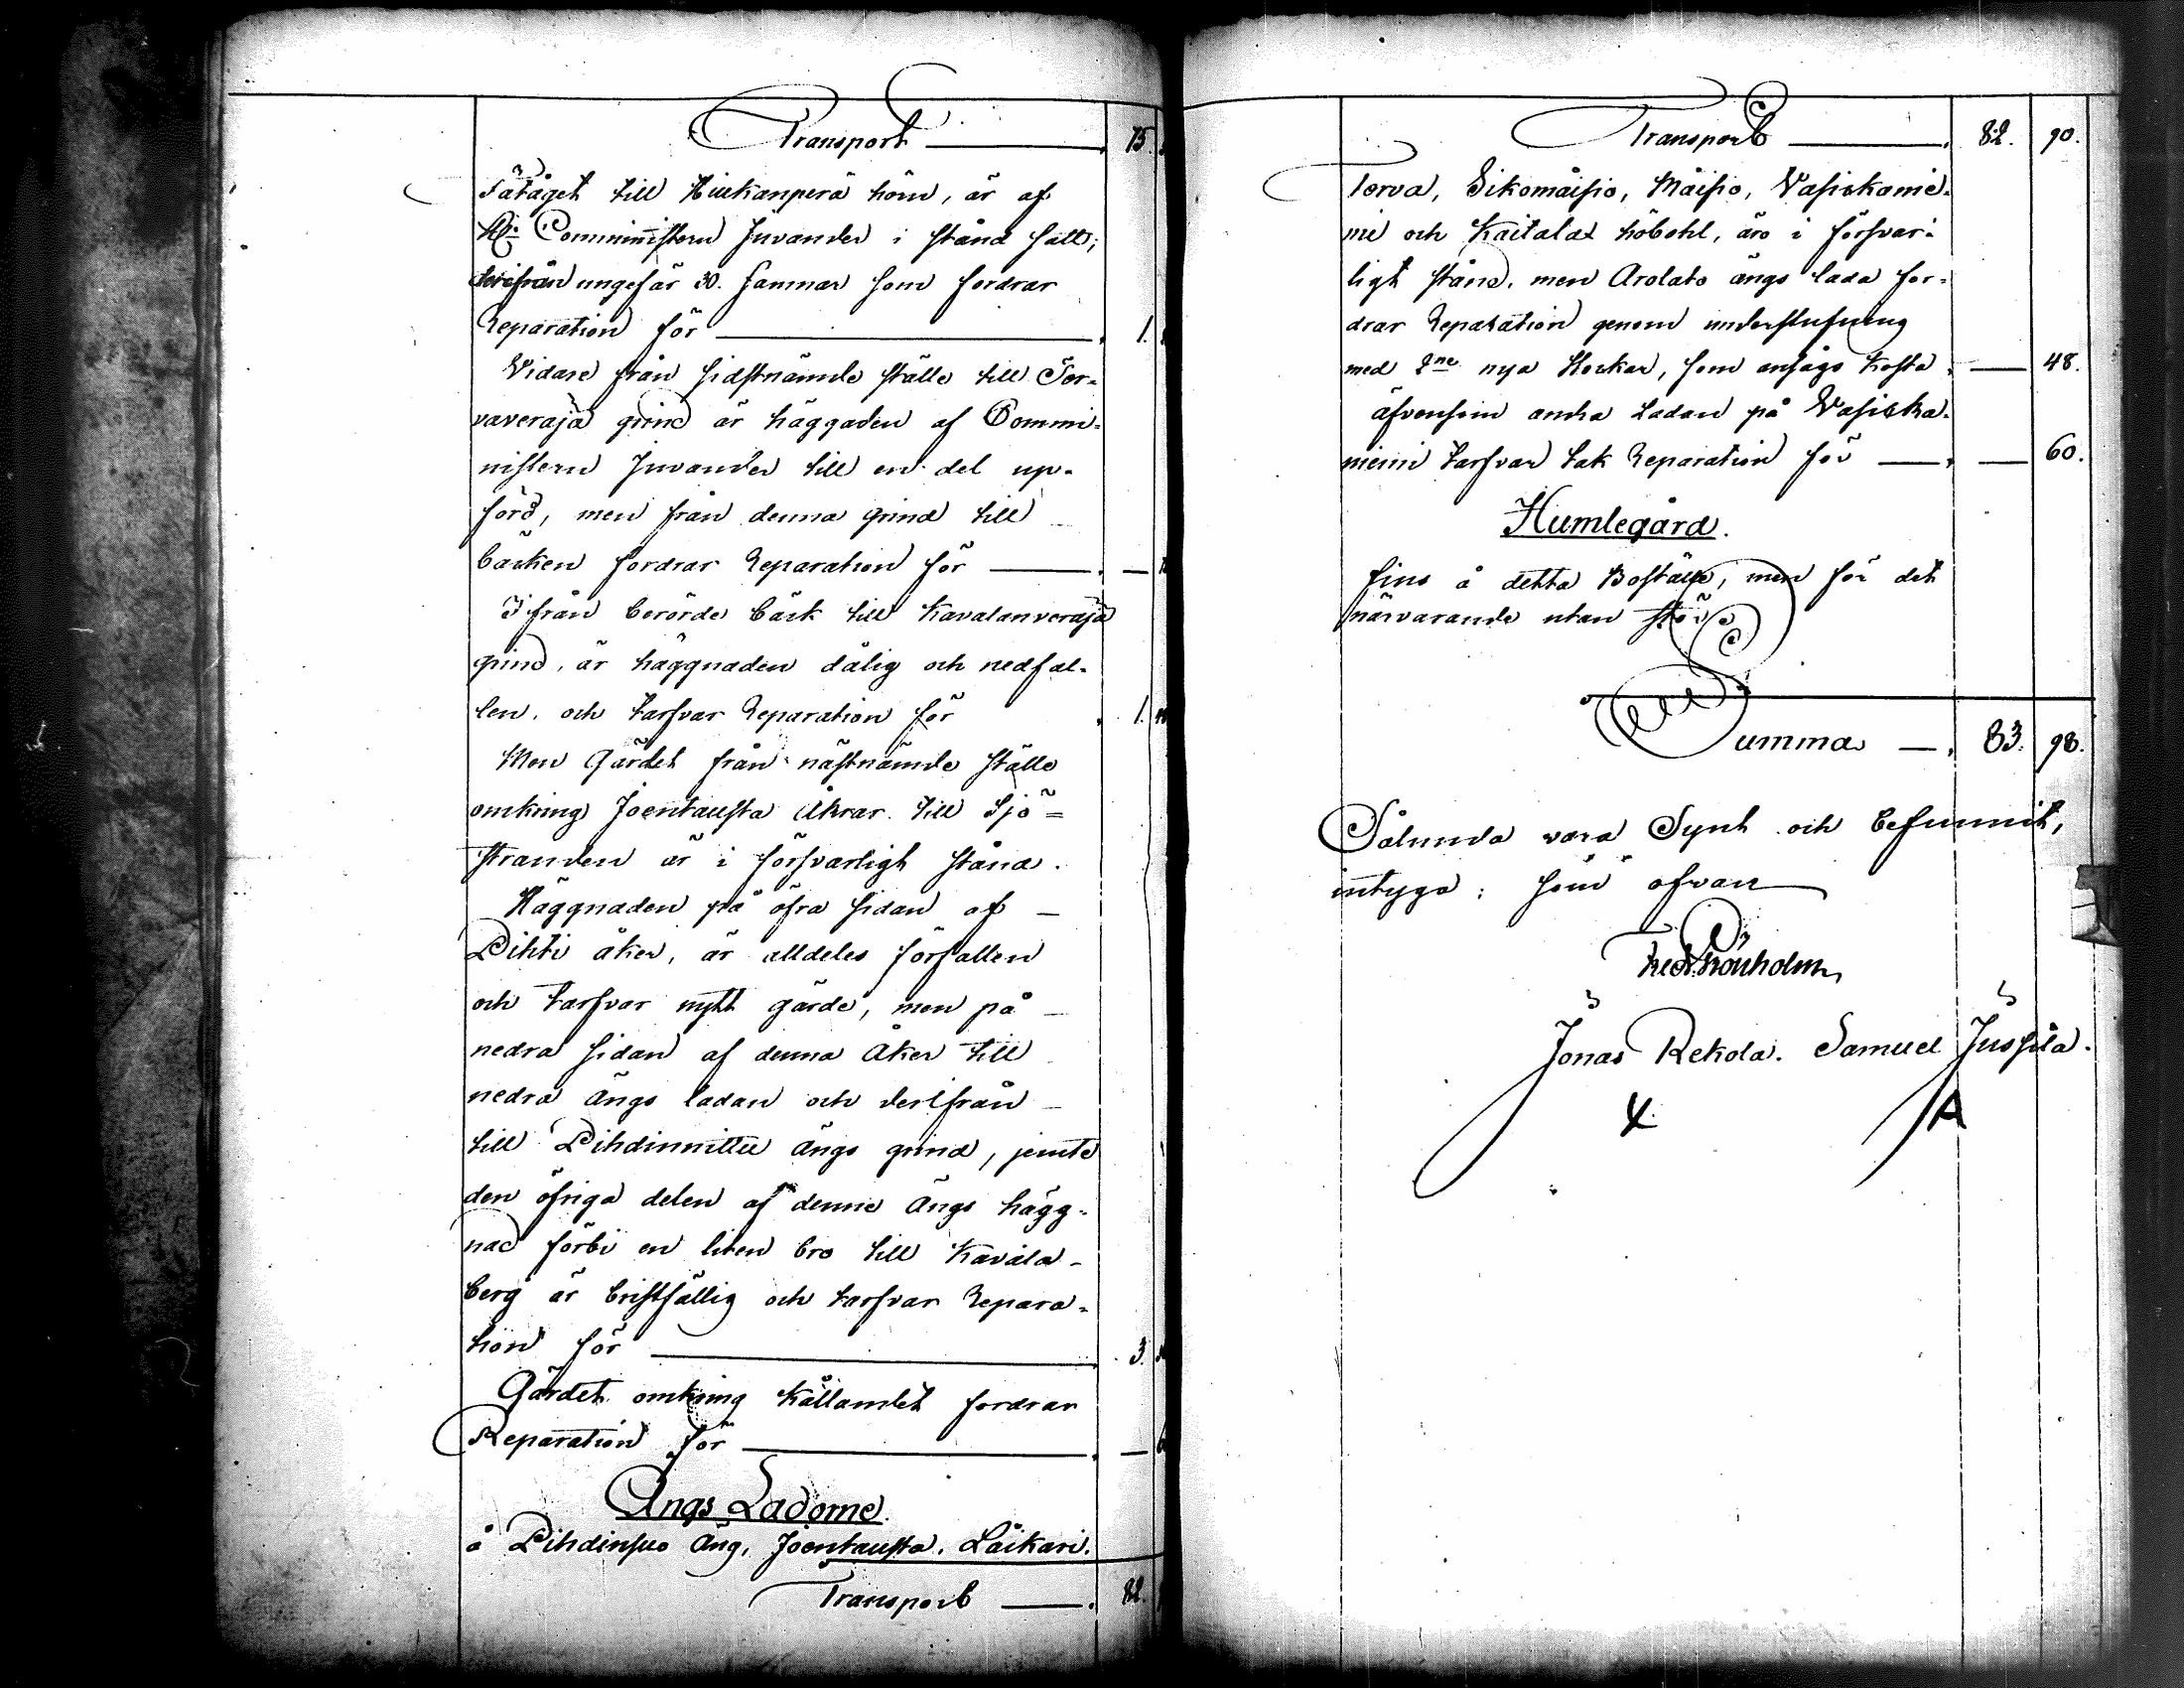 Transport 75.
Fätåget till Hiukanperä hörn, är af
H:r Comministern Juvander i stånd satt;
derifrån ungefär 30. famnar som fordrar
Reparation för 1.
Vidare från sidstnämde ställe till Tor-
vaveräjä grind är häggaden af Commi-
nistern Juvander till en del up-
förd, men från denna grind till
bäcken fordrar Reparation för —
Ifrån berörde bäck till Kavalanveräjä
grind, är häggnaden dålig och nedfal-
len, och tarfvar Reparation för 1.
Men Gärdet från nästnämde ställe
omkring Joentausta Åkrar till Sjö-
stranden är i försvarligt stånd.
Häggnaden på öfra sidan af
Pihti åker, är alldeles förfallen
och tarfvar nytt gärde, men på
nedra sidan af denna Åker till
nedra Ängs ladan och derifrån
till Pihdinnittu Ängs grind, jemte
den öfriga delen af denne Ängs hägg-
nad förbi en liten bro till Kavala-
berg är bristfällig och tarfvar Repara-
tion för 3.
Gärdet omkring Kållandet fordrar
Reparation för —
Ängs Ladorne
å Pihdinsuo Äng, Joentausta, Läikäri.
Transport 82.
Transport 82. 90.
Torva, Sikomäisio, Mäisio, Vasiskanie-
mi och Kaitalax höbohl, äro i försvar-
ligt stånd, men Arolato ängs lada for-
drar Reparation genom understufning
med 2ne nya Stockar, som ansågs kosta — 48.
äfvensom andra Ladan på Vasiska-
niemi tarfvar tak Reparation för — 60.
Humlegård.
fins å detta Boställe, men för det
närvarande utan stör
Summa — 83. 98.
Sålunda vara Synt och befunnit,
intyga; som ofvan
Jonas Rekola. Samuel Jussila.